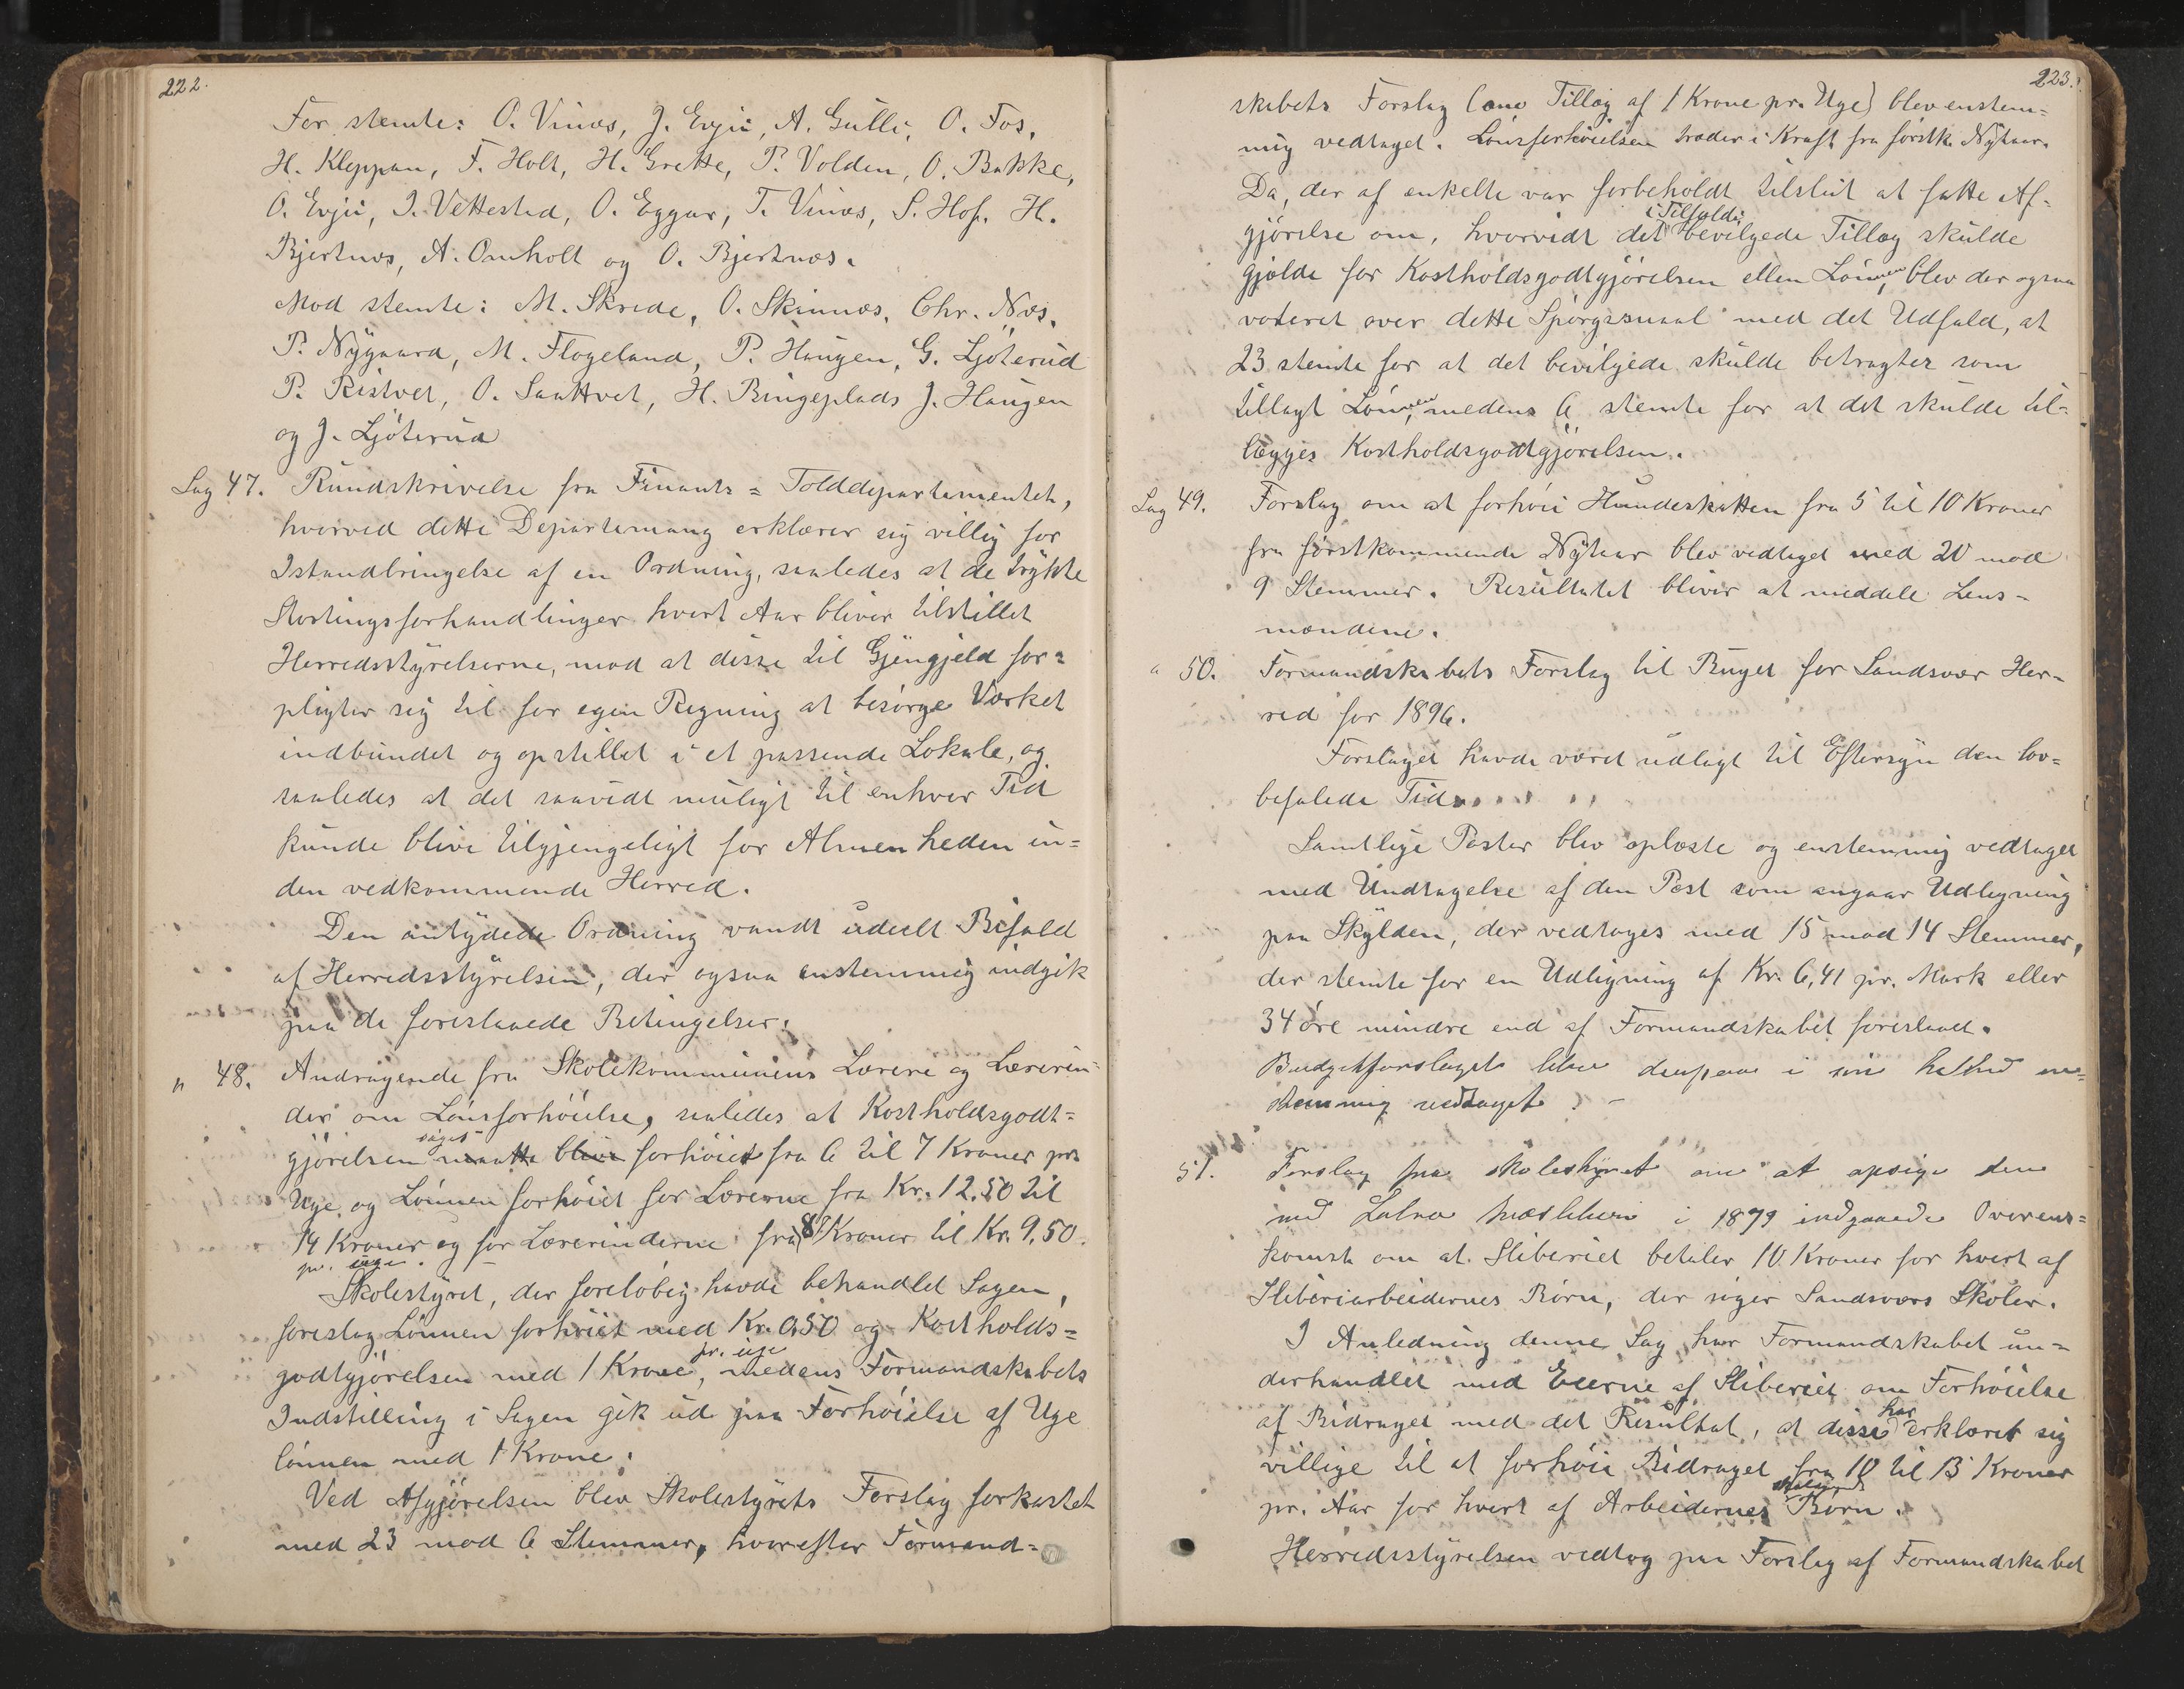 222.
For stemte: O. Vinæs, J. Evju, A. Gulli, O. Fos,
H. Kleppan, F. Holt, H. Grette, P. Volden, O. Bakke,
O. Evju, I. Vettestad, O. Eggar, T. Vinæs, S. Hof, H.
Bjertnæs, A. Omholt og O. Bjertnæs.
Mod stemte: M. Skrede, O. Skinnæs, Chr. Næs,
P. Nygaard, M. Flogeland, P. Haugen, G. Ljøterud
P. Ristvet, O. Saattvet, H. Bingeplads J. Haugen
og J. Ljøterud
Sag 47. Rundskrivelse fra Finants = Tolddepartementet,
hvorved dette Departemang erklærer sig villig for
Istandbringelse af en Ordning, saaledes at de trykte
Stortingsforhandlinger hvert Aar bliver tilstillet
Herredsstyrelserne, mod at disse til Gjengjeld for=
pligter sig til for egen Regning at besørge Værket
indbundet og opstillet i et passende Lokale, og
saaledes at det saavidt muligt til enhver Tid
kunde blive tilgjengeligt for Almenheden in=
den vedkommende Herred.
Den antydede Ordning vandt udeelt Bifald
af Herredsstyrelsen, der ogsaa enstemmig indgik
paa de foreslaaede Betingelser.
" 48. Andragende fra Skolekommunens Lærere og Lærerin=
der om Lønsforhøielse, saaledes at Kostholdsgodt=
søges
gjørelsen maatte blive forhøiet fra 6 til 7 Kroner pr.
Uge, og Lønnen forhøiet for Lærerne fra Kr. 12.50 til
14 Kroner og for Lærerinderne fra 8 Kroner til Kr. 9.50.
pr. uge.
Skolestyret, der foreløbig havde behandlet Sagen,
foreslog Lønnen forhøiet med Kr. 0,50 og Kostholds=
pr. uge
godtgjørelsen med 1 Krone, medens Formandskabets
Indstilling i Sagen gik ud paa Forhøielse af Uge
lønnen med 1 Krone.
Ved Afgjørelsen blev Skolestyrets Forslag forkastet
med 23 mod 6 Stemmer, hvorefter Formand=
223.
skabets Forslag (om Tillæg af 1 Krone pr. Uge) blev enstem=
mig vedtaget. Lønsforhøielsen træder i Kraft fra førstk. Nytaar.
Da, der af enkelte var forbeholdt tilslut at fatte Af=
i Tilfælde
gjørelse om, hvorvidt det bevilgede Tillæg skulde
gjælde for Kostholdsgodtgjørelsen eller Lønnen, blev der ogsaa
voteret over dette Spørgsmaal med det Udfald, at
23 stemte for at det bevilgede skulde betragtes som
tillagt Lønnen, medens 6 stemte for at det skulde til=
lægges Kostholdsgodtgjørelsen.
Sag 49. Forslag om at forhøie Hundeskatten fra 5 til 10 Kroner
fra førstkommende Nytaar blev vedtaget med 20 mod
9 Stemmer. Resultatet bliver at meddele Lens=
mændene.
" 50. Formandskabets Forslag til Buget for Sandsvær Her=
red for 1896.
Forslaget havde været udlagt til Eftersyn den lov=
befalede Tid.
Samtlige Poster blev oplæste og enstemmig vedtaget
med Undtagelse af den Post som angaar Udligning
paa Skylden, der vedtoges med 15 mod 14 Stemmer,
der stemte for en Udligning af Kr. 6,41 pr. Mark eller
34 øre mindre end af Formandskabet foreslaaet.
Budgetforslaget blev derpaa i sin helhed en=
stemmig vedtaget. -
51. Forslag fra skolestyret om at opsige den
med Labro træsliberi i 1879 indgaaede Overens=
komst om at Sliberiet betaler 10 Kroner for hvert af
Sliberiarbeidernes Børn, der søger Sandsværs Skoler.
I Anledning denne Sag har Formandskabet un=
derhandlet med Eierne af Sliberiet om Forhøielse
har
af Bidraget med det Resultat, at disse erklæret sig
villige til at forhøie Bidraget fra 10 til 13 Kroner
pr. Aar for hvert af Arbeidernes Børn.
Herredsstyrelsen vedtog paa Forslag af Formandskabet